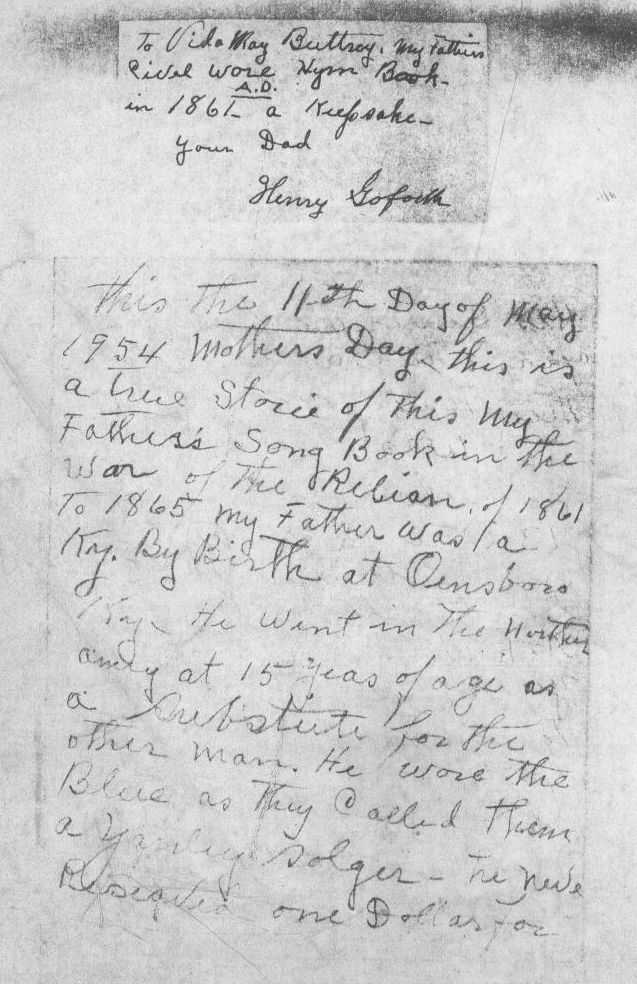 To Vida May Buttroy. My Fathers
Civel wore Hym Book-
A.D.
in 1861- a Keepsake-
your Dad
Henry Goforth
This the 11-th Day of May
1954 Mothers Day. this is
a true Storie of This My
Father's Song Book in the
War of The Rebion. of 1861
To 1865 My Father was a
Ky. By Birth at Oensboro
Ky. He went in The Northen
amey at 15 yeas of age as
a Subtitute for the
other man. He wore the
Blue as They Called Them
a Yankey Solger - he neve
one Dollar for